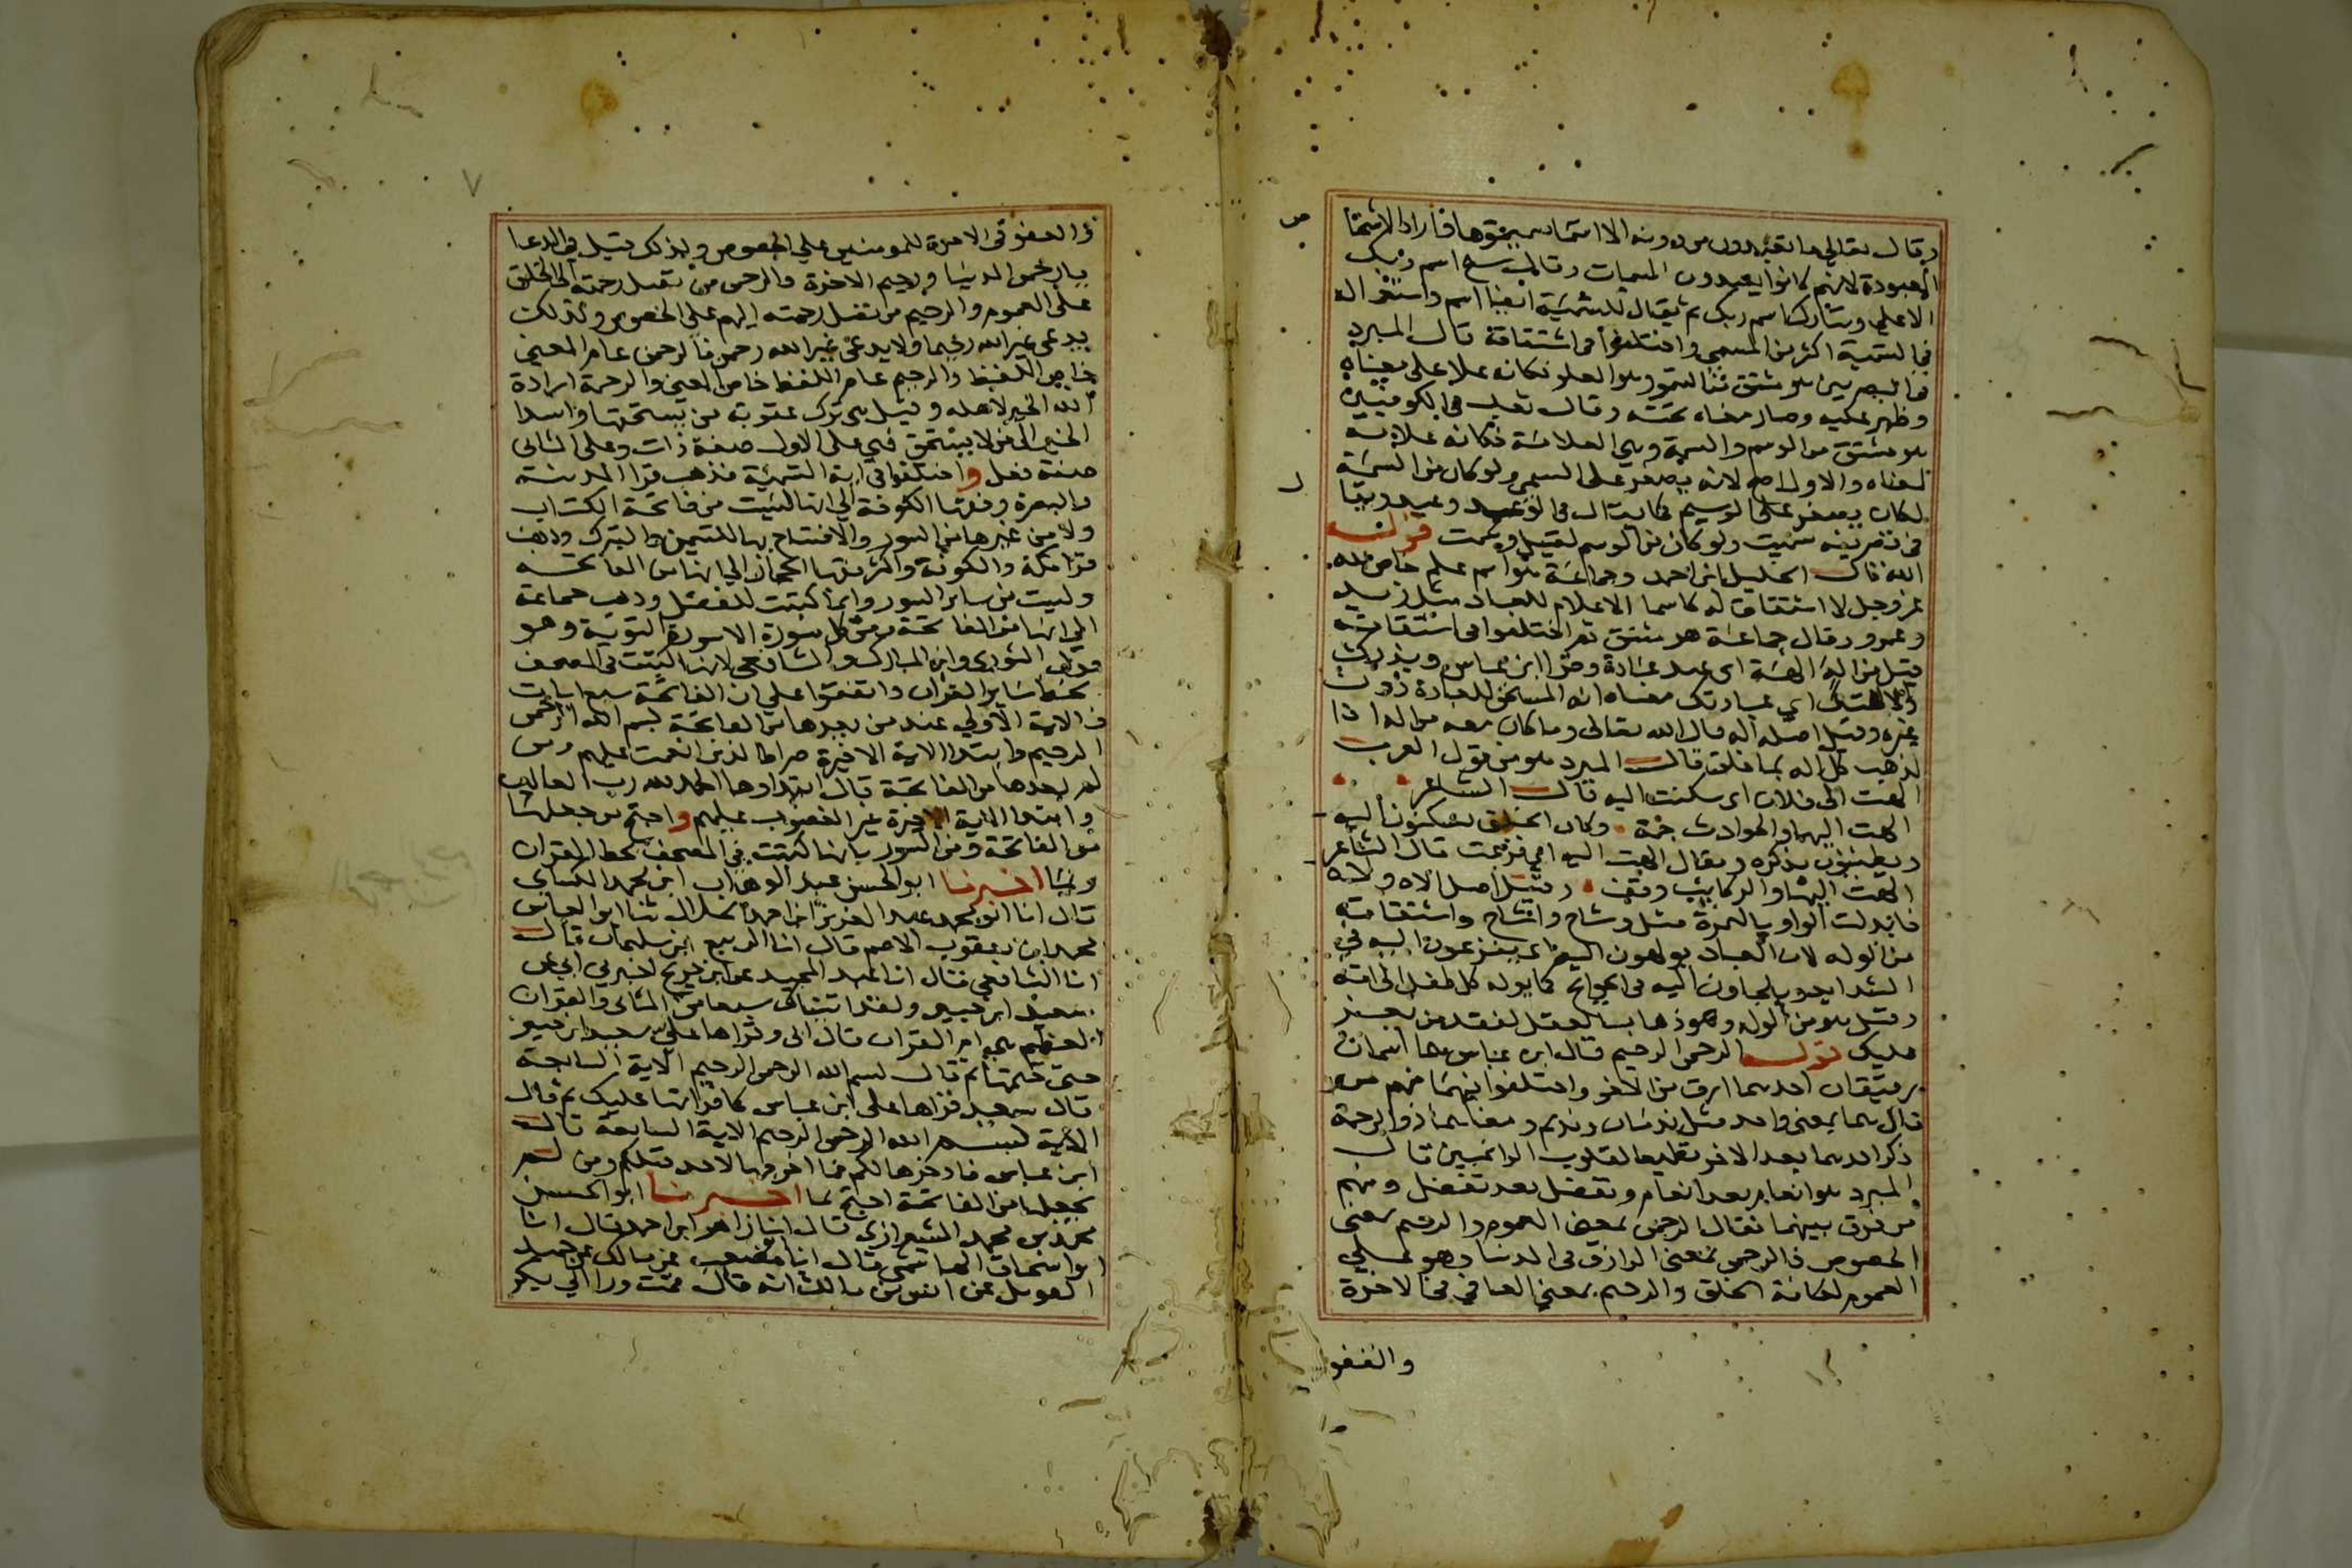 وقال تعالى ما تعبدون من دونه الا اسما سميتموها فاراد الاشخا
المعبودة لانهم كانوا يعبدون المسميات وقال سبح اسم ربك
الاعلى وتبارك اسم ربك ثم يقال للتسمية ايضا اسم واستعماله
في التسمية اكثر من المسمى واختلفوا في اشتقاقه قال المبرد
من البصريين هو مشتق من السمو وهو العلو فكانه علا على معناه
وظهر عليه وصار معناه تحته وقال ثعلب من الكوفيين
هو مشتق من الوسم والسمة وهي العلامة فكانه علامة
لمعناه والاول اصح لانه يصغر على السمي ولو كان من السمة
لكان يصغر على الوسيم كما يقال في الوعد وعيد ويقا
في تصريفه سميت ولو كان من الوسم لقيل وسمت قوله
الله قال الخليل ابن احمد وجماعة هو اسم علم خاص لله
عز وجل لا اشتقاق له كاسما الاعلام للعباد مثل زيد
وعمرو وقال جماعة هو مشتق ثم اختلفوا في اشتقاقه
قيل من اله الهة اى عبد عبادة وقرا ابن عباس ويذرك
والاهتك اي عبادتك معناه انه المستحق للعبادة دون
غيره وقيل اصله اله قال الله تعالى وما كان معه من اله اذا
لذهب كل اله بما خلق قال المبرد هو من قول العرب
الهت الى فلان اى سكنت اليه قال الشاعر
الهت اليها والحوادث جمة وكان الخلق يسكنون اليه
ويطمئنون بذكره ويقال الهت اليه اي فزعت قال الشاعر
الهت اليها والركايب وقف وقيل اصل الاه ولاه
فابدلت الواو بالهمزة مثل وشاح واشاح واشتقاقه
من الوله لان العباد يولهون اليه اى يفزعون اليه في
الشدايد ويلجاون اليه في الحوايج كما يوله كل طفل الى امه
وقيل هو من الوله وهو ذهاب العقل لفقد من يعز
عليك قوله الرحمن الرحيم قال ابن عباس هما اسمان
رقيقان احدهما ارق من الاخر واختلفوا فيهما فمنهم من
قال هما بمعنى واحد مثل ندمان ونديم ومعناهما ذو الرحمة
ذكر احدهما بعد الاخر تطميعا لقلوب الراغبين قال
المبرد هو انعام بعد انعام وتفضل بعد تفضل ومنهم
من فرق بينهما فقال الرحمن بمعنى العموم والرحيم بمعنى
الخصوص فالرحمن بمعنى الرازق في الدنيا وهو على
العموم لكافة الخلق والرحيم بمعنى العافي في الاخرة
والعفو
٧
والعفو في الاخرة للمومنين على الخصوص ولذلك قيل في الدعا
يا رحمن الدنيا ورحيم الاخرة والرحمن من تصل رحمته الى الخلق
على العموم والرحيم من تصل رحمته اليهم على الخصوص ولذلك
يدعى غير الله رحيما ولا يدعى غير الله رحمن فالرحمن عام المعنى
خاص اللفظ والرحيم عام اللفظ خاص المعنى والرحمة ارادة
الله الخير لاهله وقيل هى ترك عقوبة من يستحقها واسدا
الخير الى من لا يستحق فهي على الاول صفة ذات وعلى الثاني
صفة فعل واختلفوا في اية التسمية فذهب قرا المدينة
والبصرة وفقها الكوفة الى انها ليست من فاتحة الكتاب
ولا من غيرها من السور والافتتاح بها للتيمن والتبرك وذهب
قرا مكة والكوفة واكثر فقها الحجاز الى انها من الفاتحة
وليست من ساير السور وانما كتبت للفصل وذهب جماعة
الى انها من الفاتحة ومن كل سورة الا سورة التوبة وهو
قول الثوري وابن المبارك والشافعي لانها كتبت في المصحف
بخط ساير القران واتفقوا على ان الفاتحة سبع ايات
فالاية الاولى عند من يعدها من الفاتحة بسم الله الرحمن
الرحيم وابتدا الاية الاخيرة صراط الذين انعمت عليهم ومن
لم يعدها من الفاتحة قال ابتداوها الحمد لله رب العالمين
وابتدا الاية الاخيرة غير المغضوب عليهم واحتج من جعلها
من الفاتحة ومن السور بانها كتبت في المصحف بخط القران
وبما اخبرنا ابو الحسن عبد الوهاب ابن محمد الكسايي
قال انا ابو محمد عبد العزيز ابن احمد الخلال ثنا ابو العباس
محمد ابن يعقوب الاصم قال انا الربيع ابن سليمان قال
انا الشافعي قال انا عبد المجيد عن ابن جريج اخبرني ابي عن
سعيد ابن جبير ولقد اتيناك سبعا من المثاني والقران
العظيم هي ام القران قال ابي وقراها علي سعيد ابن جبير
حتى ختمها ثم قال بسم الله الرحمن الرحيم الاية السابعة
قال سعيد قراها على ابن عباس كما قراتها عليك ثم قال
الاية بسم الله الرحمن الرحيم الاية السابعة قال
ابن عباس فادخرها لكم فما اخرجها لاحد قبلكم ومن لم
يجعلها من الفاتحة احتج بما اخبرنا ابو الحسن
محمد بن محمد الشيرازي قال انا زاهر ابن احمد قال انا
ابو اسحاق الهاشمي قال انا مصعب عن مالك عن حميد
الطويل عن انس بن مالك انه قال قمت ورا ابي بكر